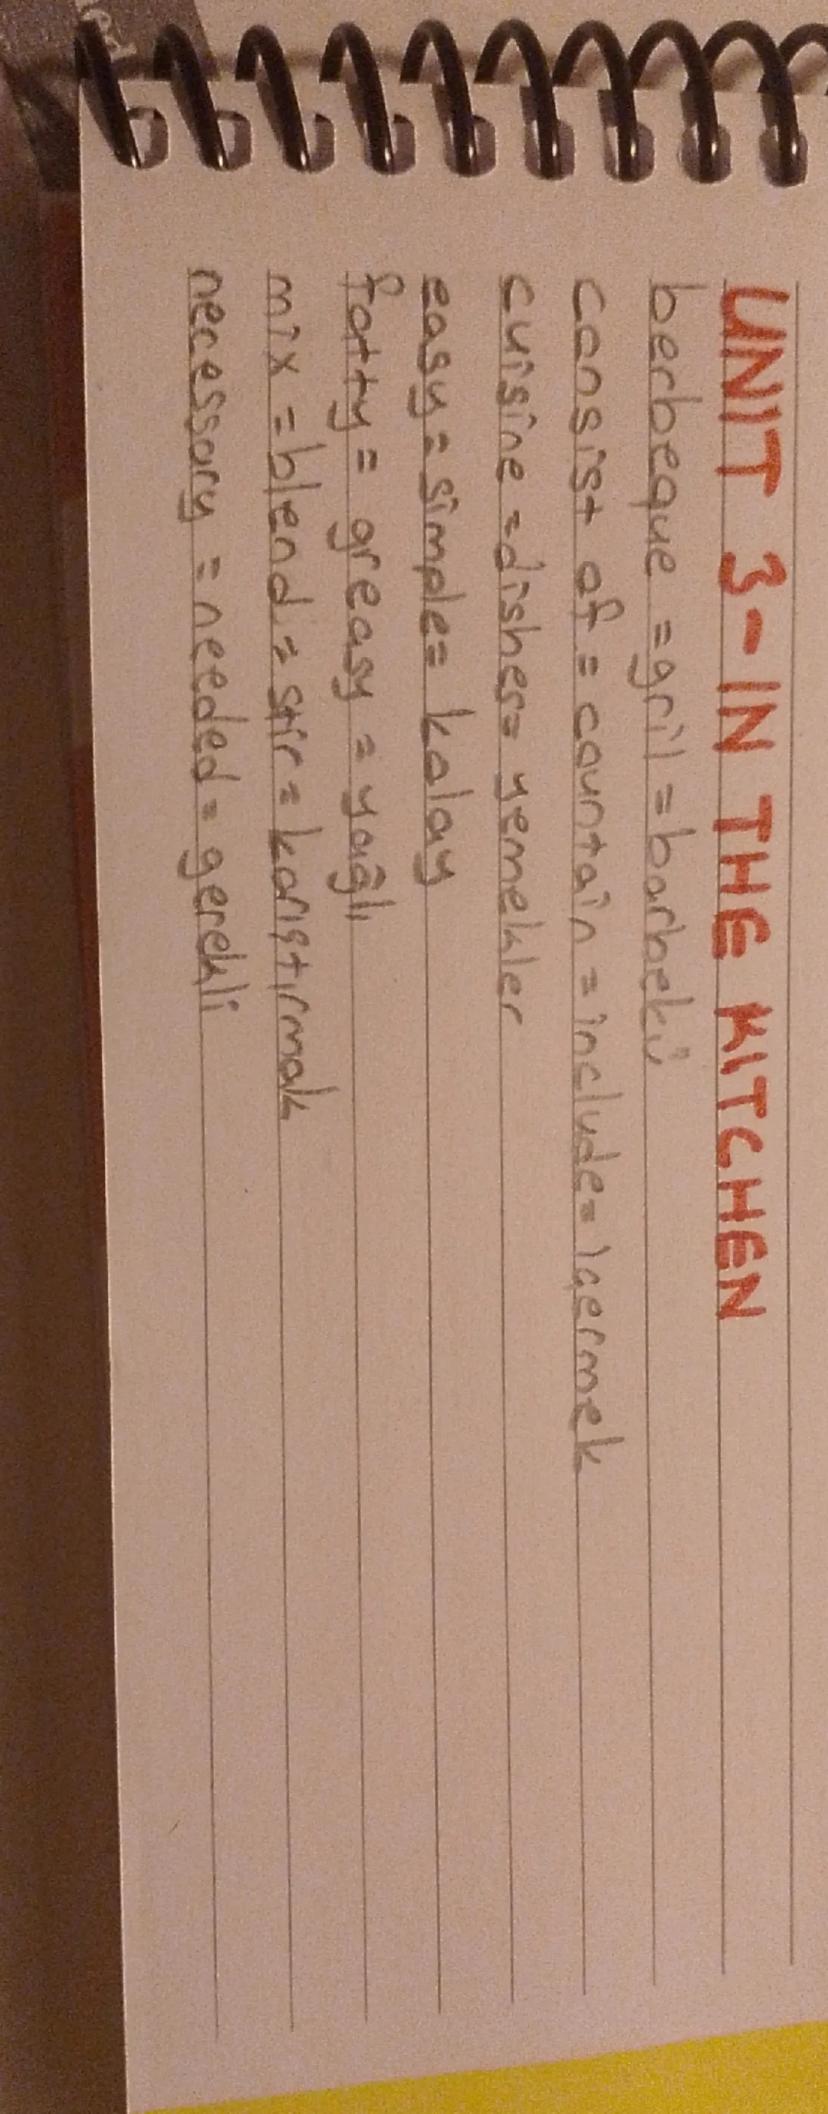 UNIT 3-IN THE KITCHEN
berbeque = gril = barbekü
consist of = countain = include = içermek
cuisine = dishes = yemekler
easy = simple = kolay
fatty = greasy = yağlı
mix = blend = stir = karıştırmak
necessary = needed = gerekli